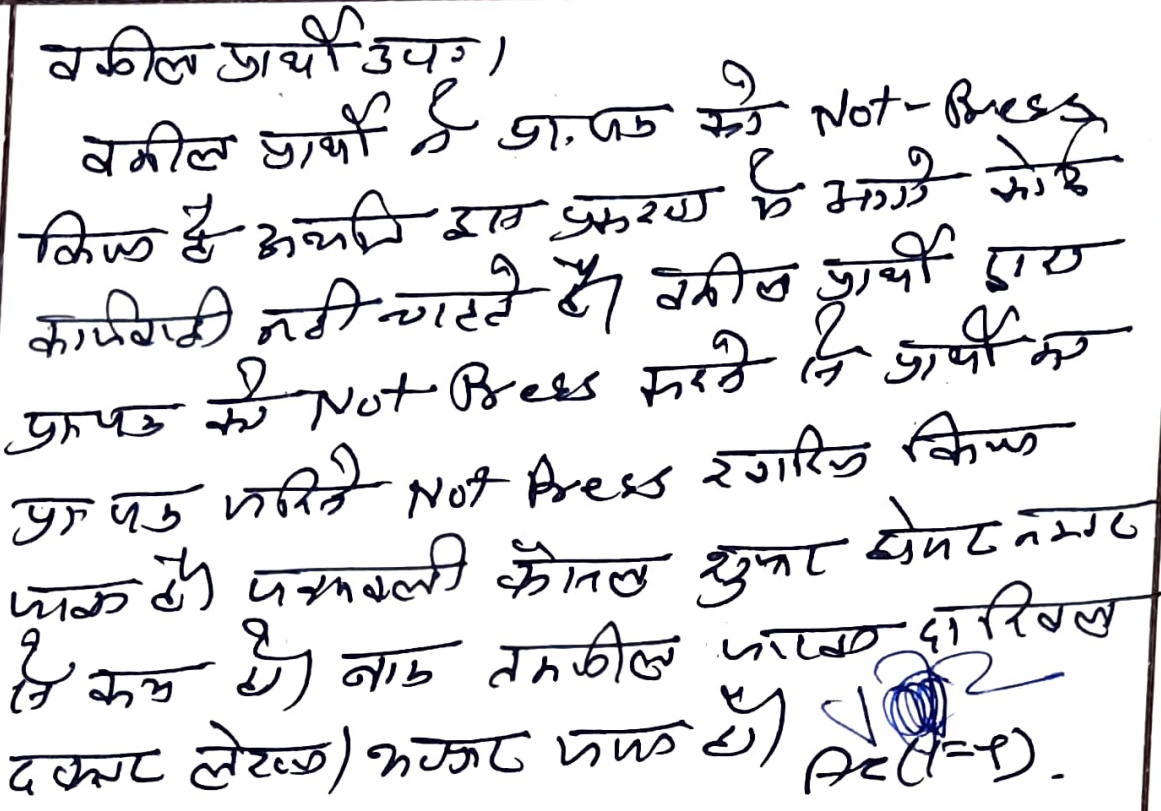 वकील प्रार्थी उप०।
वकील प्रार्थी ने प्रा.पत्र को Not-Press
किया है अर्थात इस प्रकरण में आगे कोई
कार्यवाही नही चाहते है। वकील प्रार्थी द्वारा
प्रा पत्र को Not Press करने से प्रार्थी का
प्रा पत्र जरिये Not Press खारिज किया
जाता है। पत्रावली फैसल शुमार होकर नम्बर
से कम हो। बाद तकमील दाखिल
दफ्तर हो।